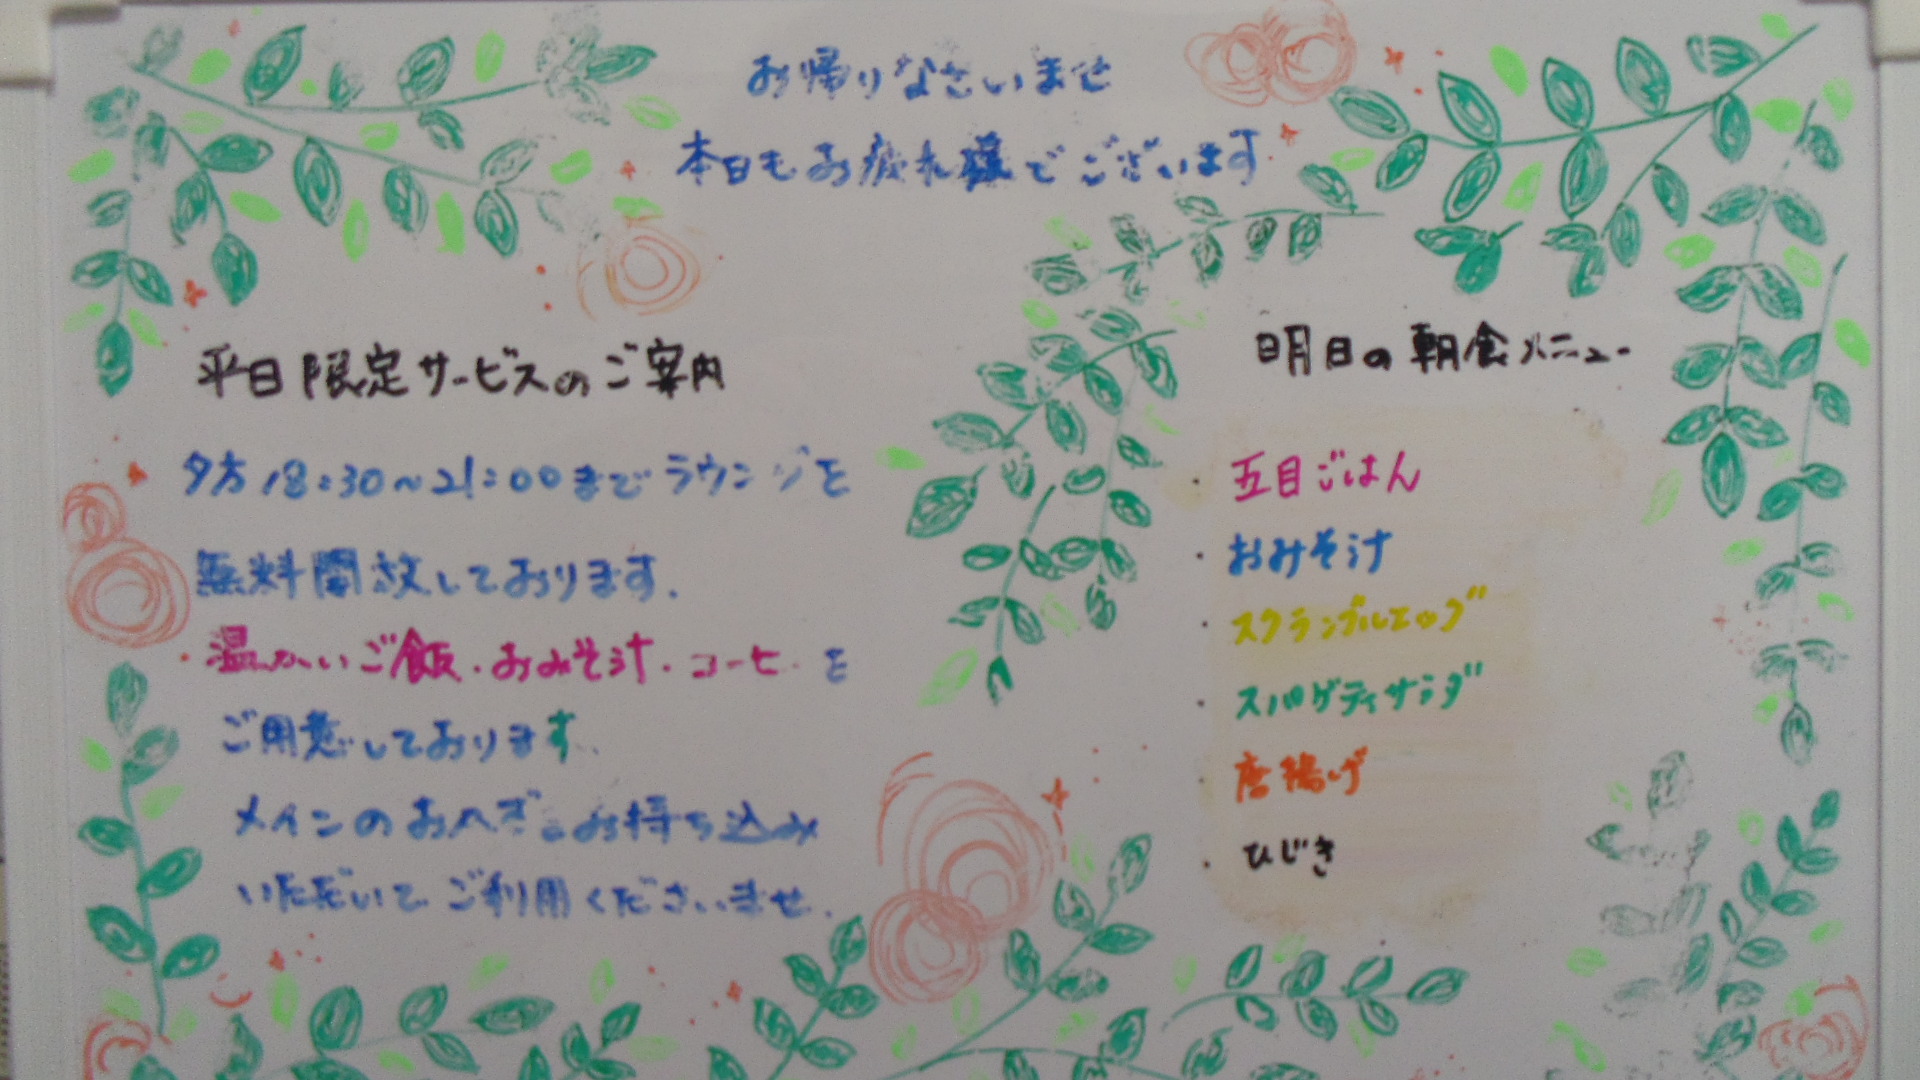 お帰りなさいませ
本日もお疲れ様でございます
平日限定サービスのご案内
夕方18:30～21:00までラウンジを
無料開放しております.
温かいご飯・おみそ汁・コーヒーを
ご用意しております.
メインのおかずをお持ち込み
いただいてご利用くださいませ.
明日の朝食メニュー
・五目ごはん
・おみそ汁
・スクランブルエッグ
・スパゲティサラダ
・唐揚げ
・ひじき